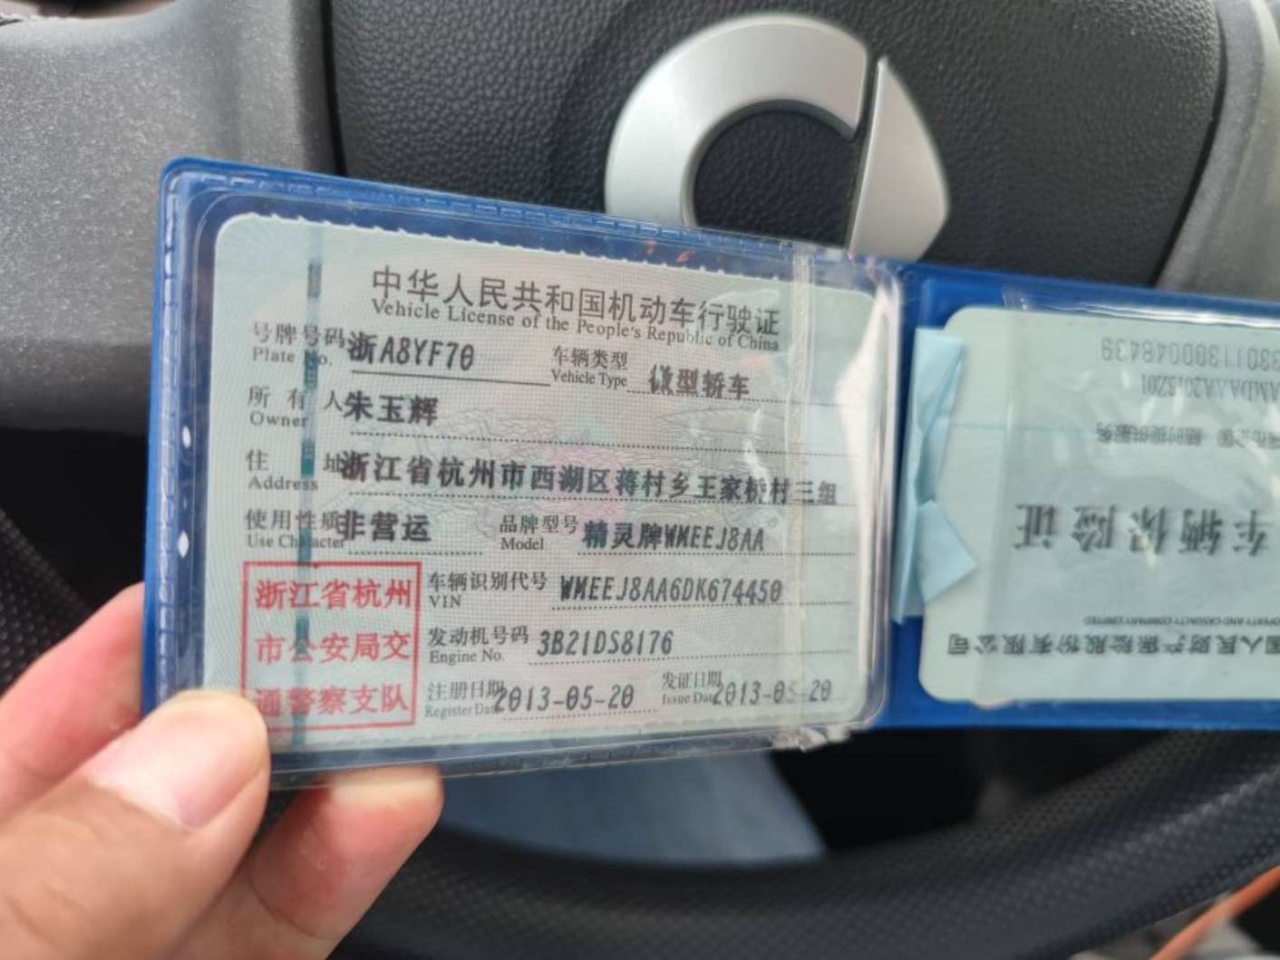 中华人民共和国机动车行驶证
Vehicle License of the People's Republic of China
号牌号码 浙A8YF70 车辆类型 微型轿车
Plate No. Vehicle Type
所有人 朱玉辉
Owner
住址 浙江省杭州市西湖区蒋村乡王家桥村三组
Address
使用性质 非营运 品牌型号 精灵牌WMEEJ8AA
Use Character Model
浙江省杭州
市公安局交
通警察支队
车辆识别代号 WMEEJ8AA6DK674450
VIN
发动机号码 3B21DS8176
Engine No.
注册日期 2013-05-20 发证日期 2013-05-20
Register Date Issue Date
国人民财产保险股份有限公司
OPERTY AND CASUALTY COMPANY LIMITED
车辆保险证